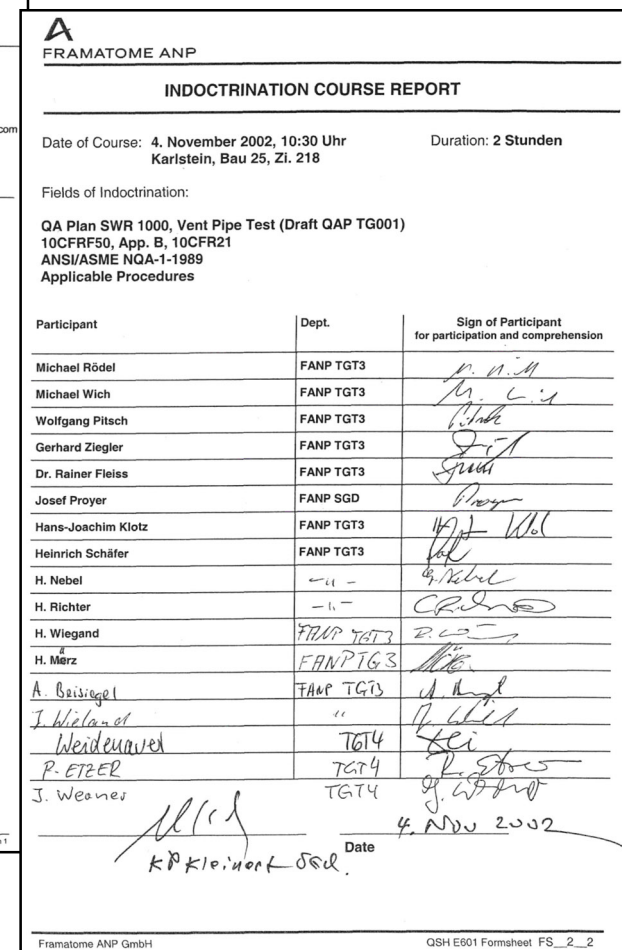 com
FRAMATOME ANP
INDOCTRINATION COURSE REPORT
Date of Course: 4. November 2002, 10:30 Uhr Duration: 2 Stunden
Karlstein, Bau 25, Zi. 218
Fields of Indoctrination:
QA Plan SWR 1000, Vent Pipe Test (Draft QAP TG001)
10CFRF50, App. B, 10CFR21
ANSI/ASME NQA-1-1989
Applicable Procedures
Participant Dept. Sign of Participant
for participation and comprehension
Michael Rödel FANP TGT3
Michael Wich FANP TGT3
Wolfgang Pitsch FANP TGT3
Gerhard Ziegler FANP TGT3
Dr. Rainer Fleiss FANP TGT3
Josef Proyer FANP SGD Proyer
Hans-Joachim Klotz FANP TGT3
Heinrich Schäfer FANP TGT3
H. Nebel -"- Nebel
H. Richter -"-
H. Wiegand FANP TGT3
H. März FANP TG3
A. Beisiegel FANP TGT3
J. Wieland "
Weidenauer TGT4
P. ETZER TGT4
J. Weaner TGT4
4. Nov 2002
Date
KP Kleinert
Framatome ANP GmbH QSH E601 Formsheet FS__2__2